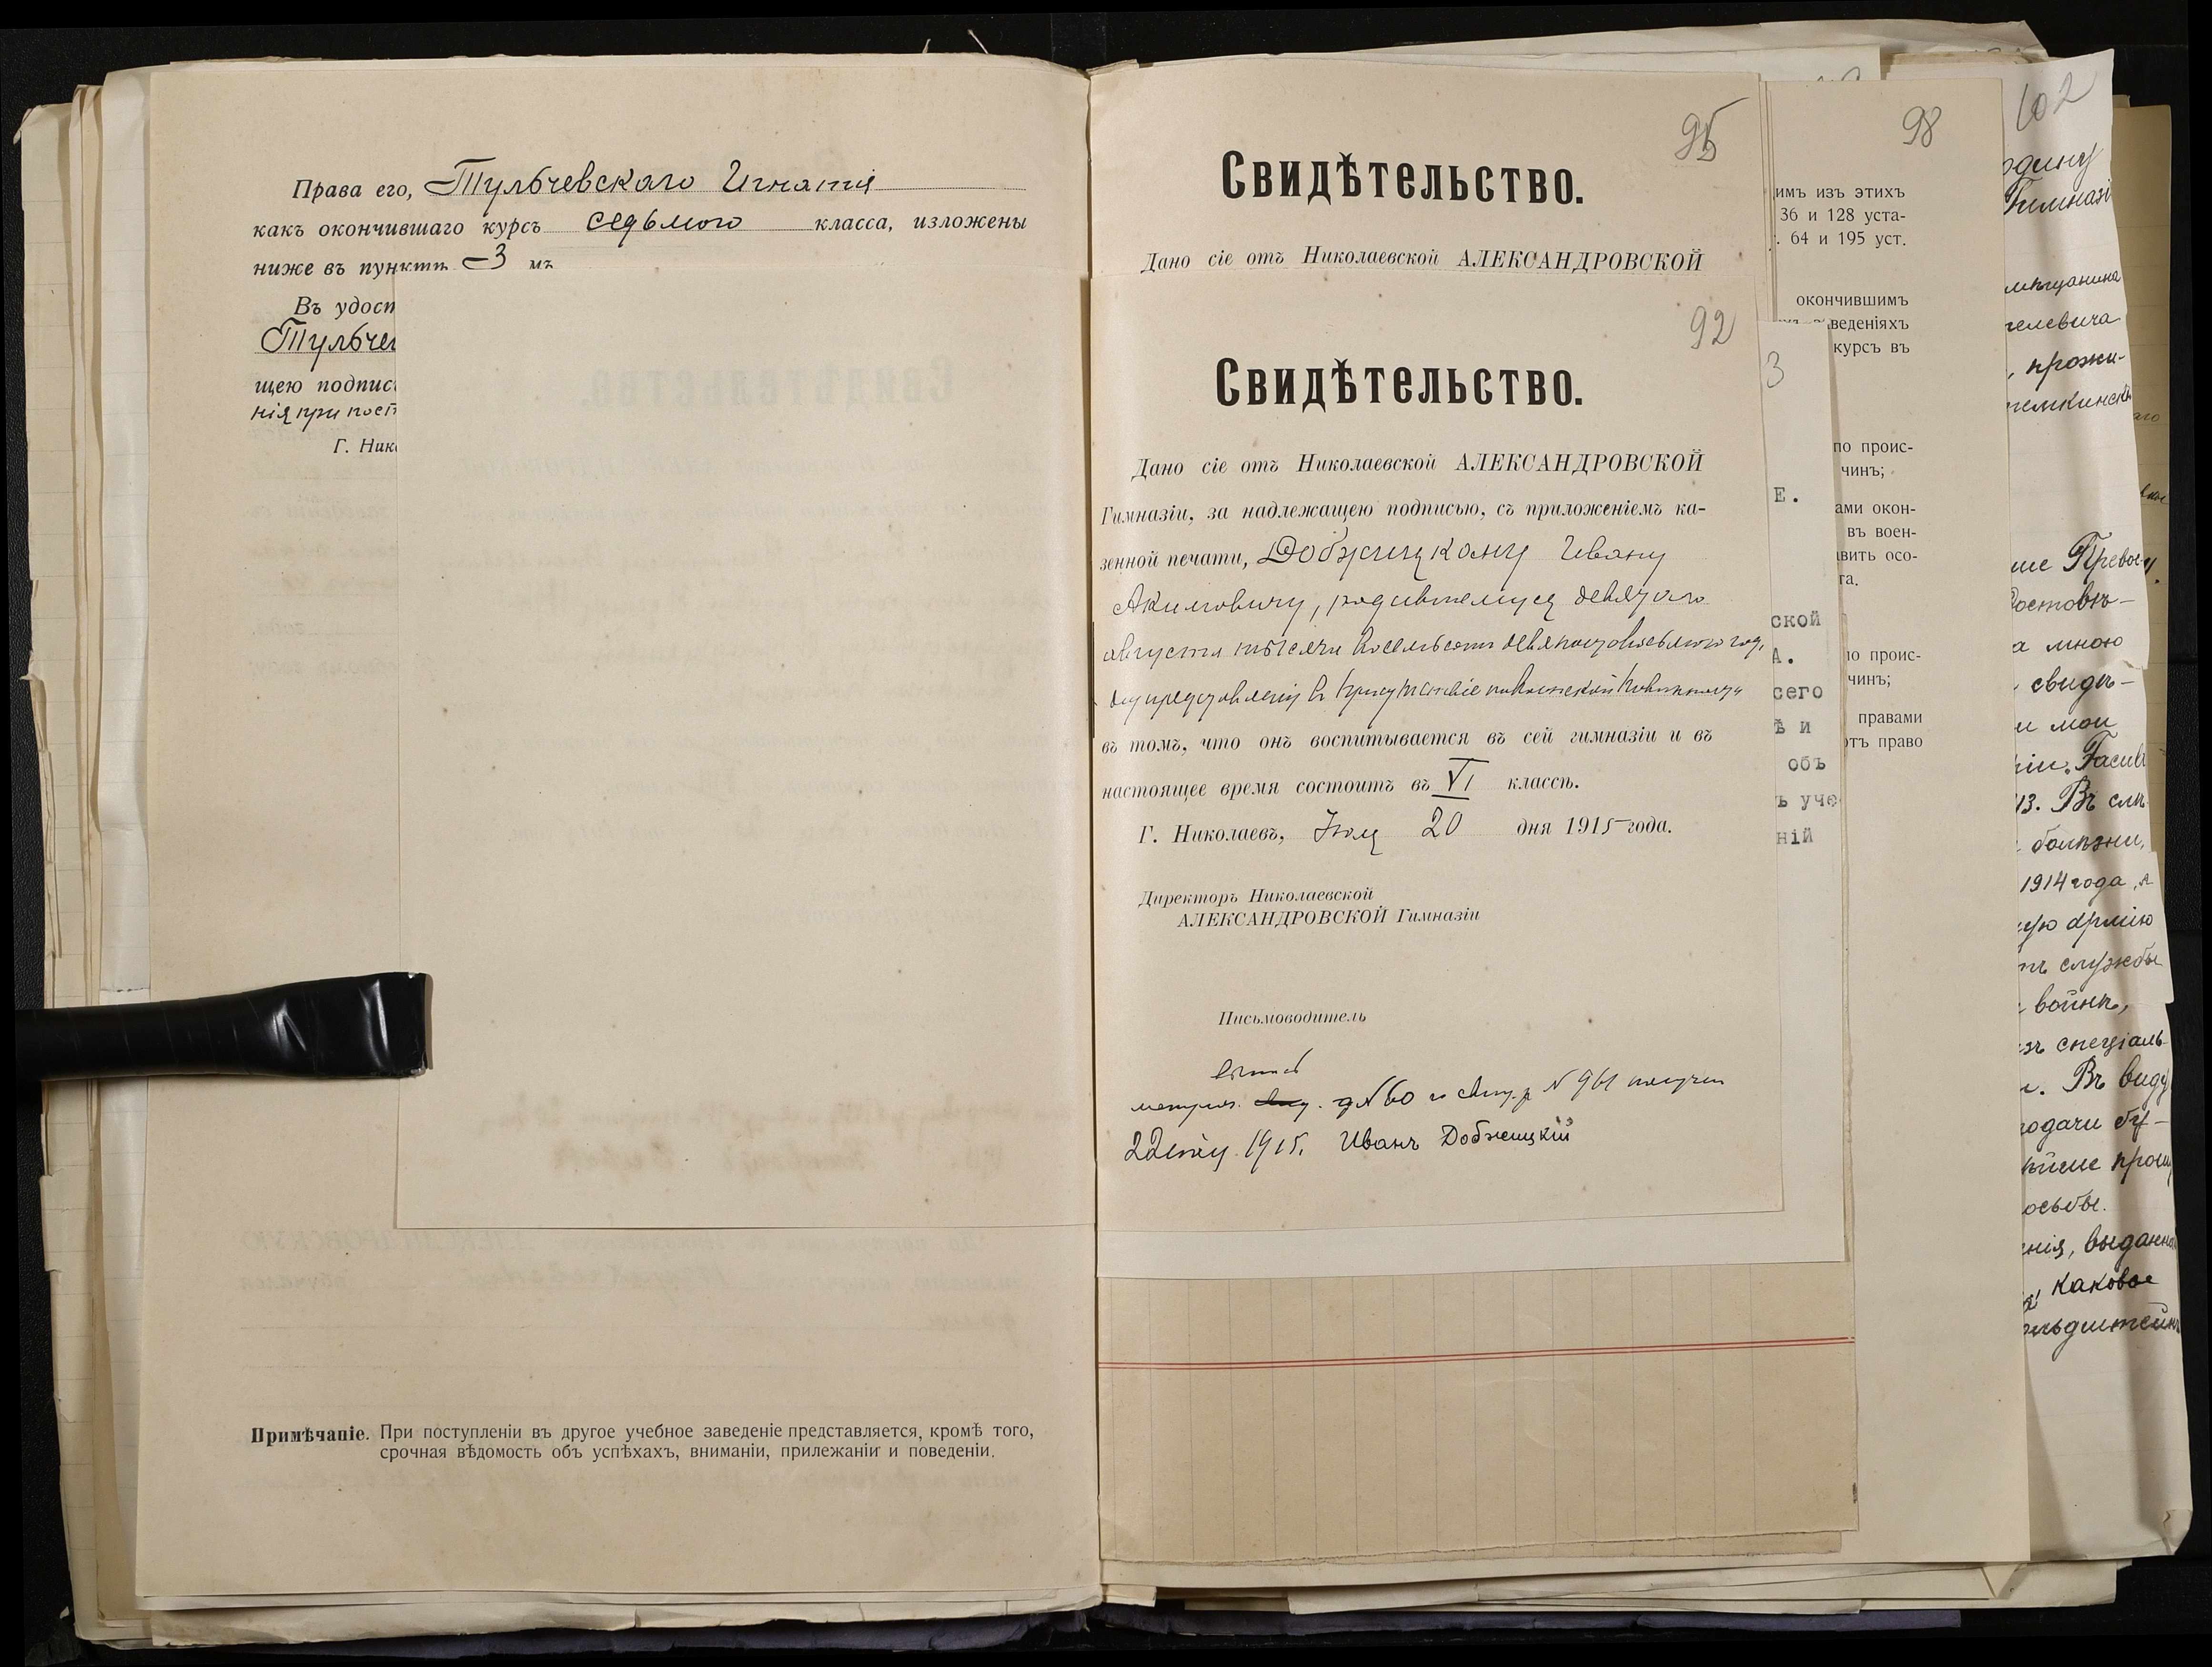 Права его, Тульчевскаго Игнатія
какъ окончившаго курсъ седьмого класса, изложены
ниже въ пунктѣ 3 мъ
Въ удост
Тульчев
щею подпис
нія при пост
Г. Ник
Примѣчаніе. При поступленіи въ другое учебное заведеніе представляется, кромѣ того,
срочная вѣдомость объ успѣхахъ, вниманіи, прилежаніи и поведеніи.
95
Свидѣтельство.
Дано сіе отъ Николаевской АЛЕКСАНДРОВСКОЙ
92
Свидѣтельство.
Дано сіе отъ Николаевской АЛЕКСАНДРОВСКОЙ
Гимназіи, за надлежащею подписью, съ приложеніемъ ка-
зенной печати, Добжицкому Ивану
Акимовичу, родившемуся девятаго
августа тысяча восемьсотъ девяносто восьмого год.
для представленія въ присутствіе по воинской повинности
въ томъ, что онъ воспитывается въ сей гимназіи и въ
настоящее время состоитъ въ VI классѣ.
Г. Николаевъ, Іюля 20 дня 1915 года.
Директоръ Николаевской
АЛЕКСАНДРОВСКОЙ Гимназіи
Письмоводитель
метрич. № 60 и № 961 получил
22 іюля 1915. Иванъ Добжицкій
3
Е.
ской
А.
сего
ѣ и
объ
ъ уче
ній
98
имъ изъ этихъ
36 и 128 уста-
. 64 и 195 уст.
окончившимъ
веденіяхъ
курсъ въ
по проис-
чинъ;
ами окон-
въ воен-
вить осо-
та.
по проис-
чинъ;
правами
отъ право
102
одину
Гимназі
мѣщанина
елевича
, прожи-
темкинской
ше Превос
остовѣ-
а мною
свидѣ-
и мои
13. Въ слѣ
болѣзни,
1914 года, а
ую армію
ть службы
войнѣ,
спеціаль-
. Въ виду
одачи бу-
йше прошу
осьбѣ.
нія, выданна
каковое
льдштейнъ